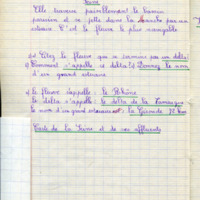 Seine
Elle traverse paisiblement le bassin
parisien et se jette dans la Manche par un
estuaire. C'est le fleuve le plus navigable
a) Citez le fleuve qui se termine par un delta
b) Comment s'appelle ce delta? c) Donnez le nom
d'un grand estuaire
a) le fleuve s'appelle : le Rhône
le delta s'appelle : le delta de la Camargue
le nom d'un grand estuaire : la Gironde 75 km
Carte de la Seine et de ses affluents